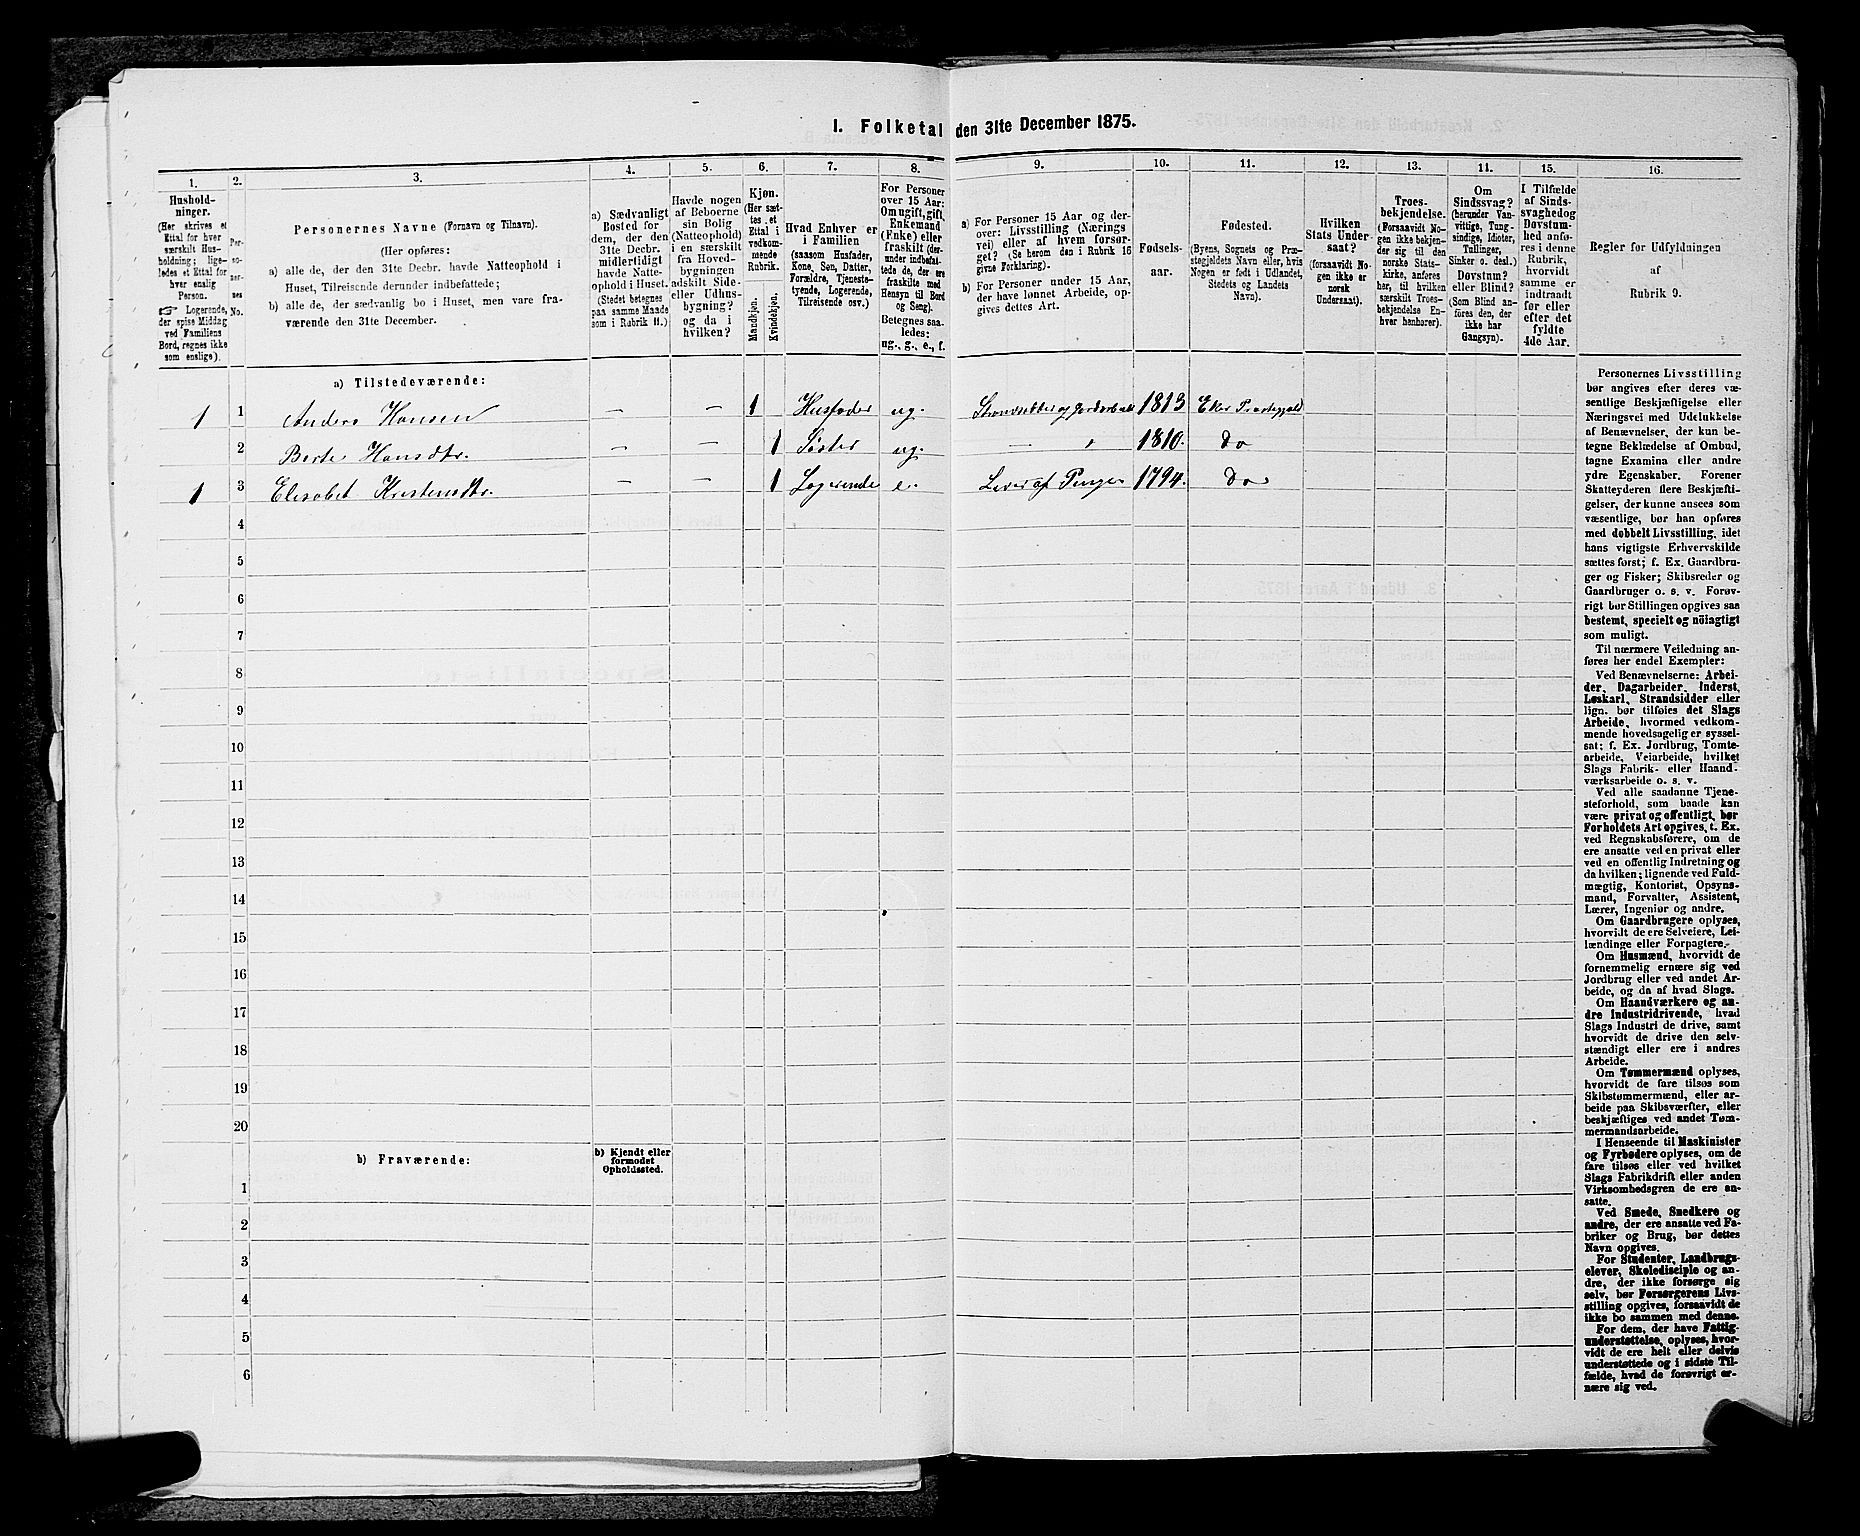 1. Folketal den 31te December 1875.
1. 2. 3. 4. 5. 6. 7. 8. 9. 10. 11. 12. 13. 11. 15. 16.
Hushold-
ninger.
(Her skrives et
Ettal for hver
særskilt Hus-
holdning; lige-
ledes et Ettal for
hver enslig
Person.
☞ Logerende,
der spise Middag
ved Familiens
Bord, regnes ikke
som enslige).
Per-
so-
ner-
nes
No.
Personernes Navne (Fornavn og Tilnavn).
(Her opføres:
a) alle de, der den 31te Decbr. havde Natteophold i
Huset, Tilreisende derunder indbefattede;
b) alle de, der sædvanlig bo i Huset, men vare fra-
værende den 31te December.
a) Sædvanligt
Bosted for
dem, der den
31te Decbr.
midlertidigt
havde Natte-
ophold i Huset.
(Stedet betegnes
paa samme Maade
som i Rubrik 11.)
Havde nogen
af Beboerne
sin Bolig
(Natteophold)
i en særskilt
fra Hoved-
bygningen
adskilt Side-
eller Udhus-
bygning?
og da i
hvilken?
Kjøn.
(Her sæt-
tes et
Ettal i
vedkom-
mende
Rubrik.
Mandkjøn.
Kvindekjøn.
Hvad Enhver er
i Familien
(saasom Husfader,
Kone, Søn, Datter,
Forældre, Tjeneste-
tyende, Logerende,
Tilreisende osv.)
For Personer
over 15 Aar:
Om ugift, gift,
Enkemand
(Enke) eller
fraskilt (der-
under indbefat-
tede de, der ere
fraskilte med
Hensyn til Bord
og Seng).
Betegnes saa-
ledes:
ug., g., e., f.
a) For Personer 15 Aar og der-
over: Livsstilling (Nærings
vei) eller af hvem forsør-
get? (Se herom den i Rubrik 16
givne Forklaring).
b) For Personer under 15 Aar,
der have lønnet Arbeide, op-
gives dettes Art.
Fødsels-
aar.
Fødested.
(Byens, Sognets og Præ-
stegjeldets Navn eller, hvis
Nogen er født i Udlandet,
Stedets og Landets
Navn).
Hvilken
Stats Under-
saat?
(forsaavidt No-
gen ikke er
norsk
Undersaat).
Troes-
bekjendelse.
(Forsaavidt No-
gen ikke bekjen-
der sig til den
norske Stats-
kirke, anføres
her, til hvilken
særskilt Troes-
bekjendelse En-
hver henhører).
Om
Sindssvag?
(herunder Van-
vittige, Tung-
sindige, Idioter,
Tullinger,
Sinker o. desl.)
Døvstum?
eller Blind?
(Som Blind an-
føres den, der
ikke har
Gangsyn).
I Tilfælde
af Sinds-
svaghed og
Døvstum-
hed anfø-
res i denne
Rubrik,
hvorvidt
samme er
indtraadt
før eller
efter det
fyldte
4de Aar.
Regler for Udfyldningen
af
Rubrik 9.
a) Tilstedeværende:
1 1 Anders Hansen — — 1 Husfader ug. Strandsidder og Jordarbeide 1813 Eker Præstegjeld
2 Berte Hansdtr. — — 1 Søster ug. — " 1810. Do
1 3 Elisabet Kristensdtr. — — 1 Logerende e. Lever af Penge 1794. Do
4
5
6
7
8
9
10
11
12
13
14
15
16
17
18
19
20
b) Fraværende:
b) Kjendt eller
formodet
Opholdssted.
1
2
3
4
5
6
Personernes Livsstilling
bør angives efter deres væ-
sentlige Beskjæftigelse eller
Næringsvei med Udelukkelse
af Benævnelser, der kun be-
tegne Beklædelse af Ombud,
tagne Examina eller andre
ydre Egenskaber. Forener
Skatteyderen flere Beskjæfti-
gelser, der kunne ansees som
væsentlige, bør han opføres
med dobbelt Livsstilling, idet
hans vigtigste Erhvervskilde
sættes først; f. Ex. Gaardbru-
ger og Fisker; Skibsreder og
Gaardbruger o. s. v. Forøv-
rigt bør Stillingen opgives saa
bestemt, specielt og nöiagtigt
som muligt.
Til nærmere Veiledning an-
føres her endel Exempler:
Ved Benævnelserne: Arbei-
der, Dagarbeider, Inderst,
Løskarl, Strandsidder eller
lign. bør tilføies det Slags
Arbeide, hvormed vedkom-
mende hovedsagelig er syssel-
sat; f. Ex. Jordbrug, Tomte-
arbeide, Veiarbeide, hvilket
Slags Fabrik- eller Haand-
værksarbeide o. s. v.
Ved alle saadanne Tjene-
steforhold, som baade kan
være privat og offentligt, bør
Forholdets Art opgives, t. Ex.
ved Regnskabsførere, om de
ere ansatte ved en privat eller
ved en offentlig Indretning og
da hvilken; lignende ved Fuld-
mægtig, Kontorist, Opsyns-
mand, Forvalter, Assistent,
Lærer, Ingeniør og andre.
Om Gaardbrugere oplyses,
hvorvidt de ere Selveiere, Lei-
lændinge eller Forpagtere.
Om Husmænd, hvorvidt de
fornemmelig ernære sig ved
Jordbrug eller ved andet Ar-
beide, og da af hvad Slags.
Om Haandværkere og an-
dre Industridrivende, hvad
Slags Industri de drive, samt
hvorvidt de drive den selv-
stændigt eller ere i andres
Arbeide.
Om Tømmermænd oplyses,
hvorvidt de fare tilsøs som
Skibstømmermænd, eller ar-
beide paa Skibsværfter, eller
beskjæftiges ved andet Tøm-
mermandsarbeide.
I Henseende til Maskinister
og Fyrbødere oplyses, om de
fare tilsøs eller ved hvilket
Slags Fabrikdrift eller anden
Virksomhedsgren de ere an-
satte.
Ved Smede, Snedkere og
andre, der ere ansatte ved Fa-
briker og Brug, bør dettes
Navn opgives.
For Studenter, Landbrugs-
elever, Skoledisciple og an-
dre, der ikke forsørge sig
selv, bør Forsørgerens Livs-
stilling opgives, forsaavidt de
ikke bo sammen med denne.
For dem, der have Fattig-
understøttelse, oplyses, hvor-
vidt de ere helt eller delvis
understøttede og i sidste Til-
fælde, hvad de forøvrigt er-
nære sig ved.